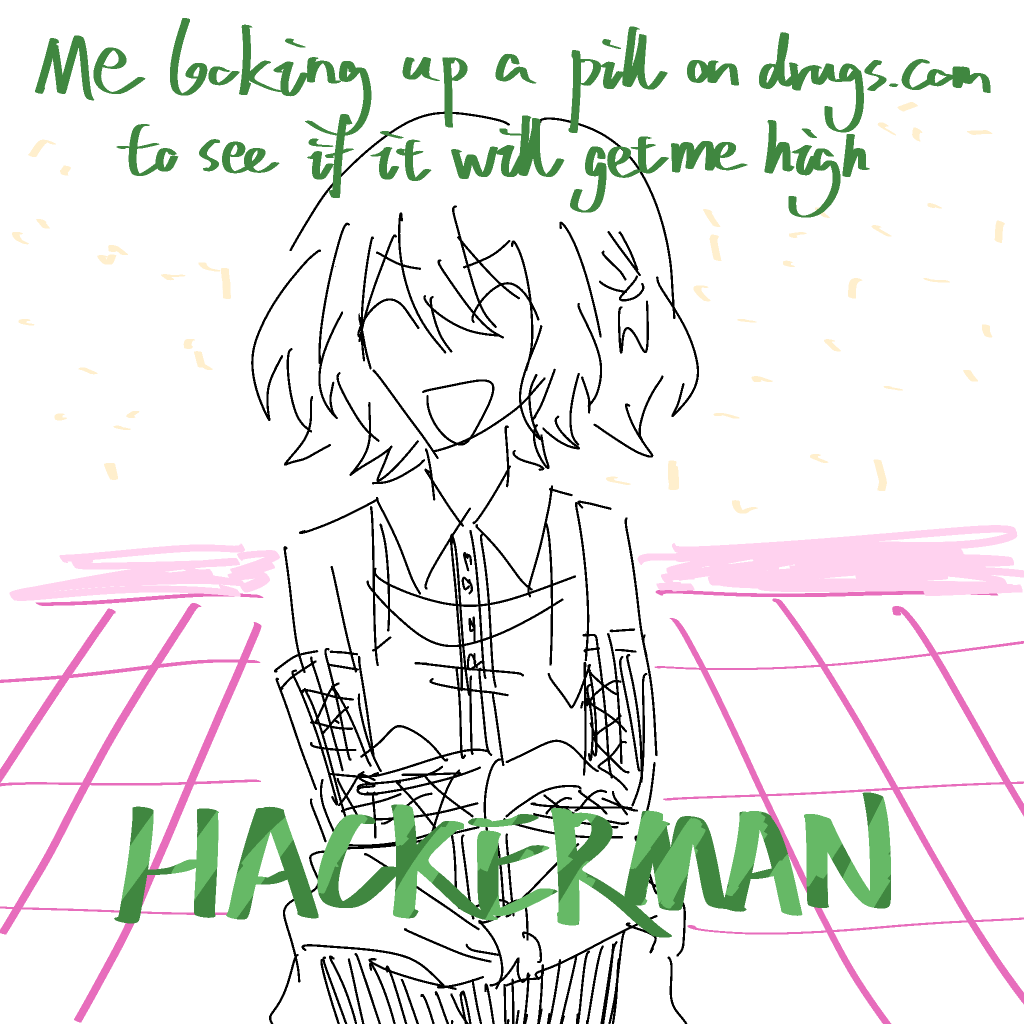 Me looking up a pill on drugs.com
to see if it will get me high
HACKERMAN